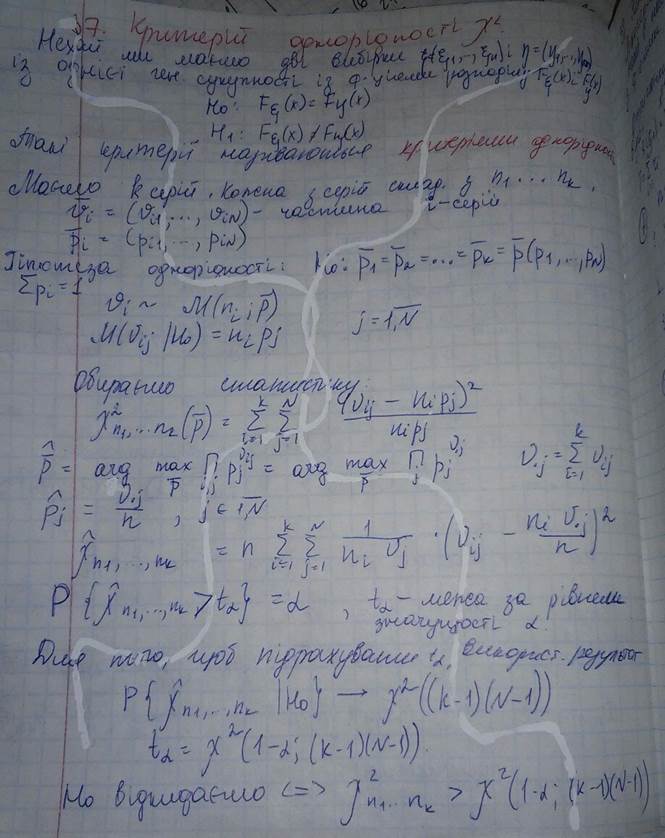 37. Критерій однорідності χ²
Нехай ми маємо дві вибірки ξ=(ξ₁,...,ξₙ) і η=(η₁,...,ηₘ)
із однієї ген. сукупності із ф-ціями розподілу F_ξ(x) і F_η(x)
H₀: F_ξ(x) = F_η(x)
H₁: F_ξ(x) ≠ F_η(x)
Такі критерії називаються критеріями однорідності
Маємо k серій, кожна з серій склад. з n₁...nₖ.
ν̄ᵢ = (νᵢ₁,...,νᵢN) - частина i-серій
p̄ᵢ = (pᵢ₁,...,pᵢN)
Гіпотеза однорідності: H₀: p̄₁ = p̄₂ = ... = p̄ₖ = p̄(p₁,...,pN)
Σpᵢ = 1
νᵢ ~ M(nᵢ; p̄)
M(νᵢⱼ | H₀) = nᵢpⱼ j = 1,N̅
Обираємо статистику:
χ²ₙ₁,...ₙ₂(p̄) = Σᵢ₌₁ᵏ Σⱼ₌₁ᴺ (νᵢⱼ - nᵢpⱼ)² / nᵢpⱼ
p̄̂ = arg max_p̄ ∏ᵢ,ⱼ pⱼ^νᵢⱼ = arg max_p̄ ∏ⱼ pⱼ^ν.ⱼ ν.ⱼ = Σᵢ₌₁ᵏ νᵢⱼ
p̂ⱼ = ν.ⱼ / n, j ∈ 1,N̅
χ̂ₙ₁,...,ₙₖ = n Σᵢ₌₁ᵏ Σⱼ₌₁ᴺ 1 / (nᵢ νⱼ) · (νᵢⱼ - nᵢ ν.ⱼ / n)²
P{χ̂ₙ₁,...,ₙₖ > t_α} = α, t_α - межа за рівнем
значущості α.
Для того, щоб підрахувати t_α, використ. результат
P{χ̂ₙ₁,...,ₙₖ | H₀} → χ²((k-1)(N-1))
t_α = χ²(1-α; (k-1)(N-1)).
H₀ відкидаємо <=> χ²ₙ₁...ₙₖ > χ²(1-α; (k-1)(N-1))